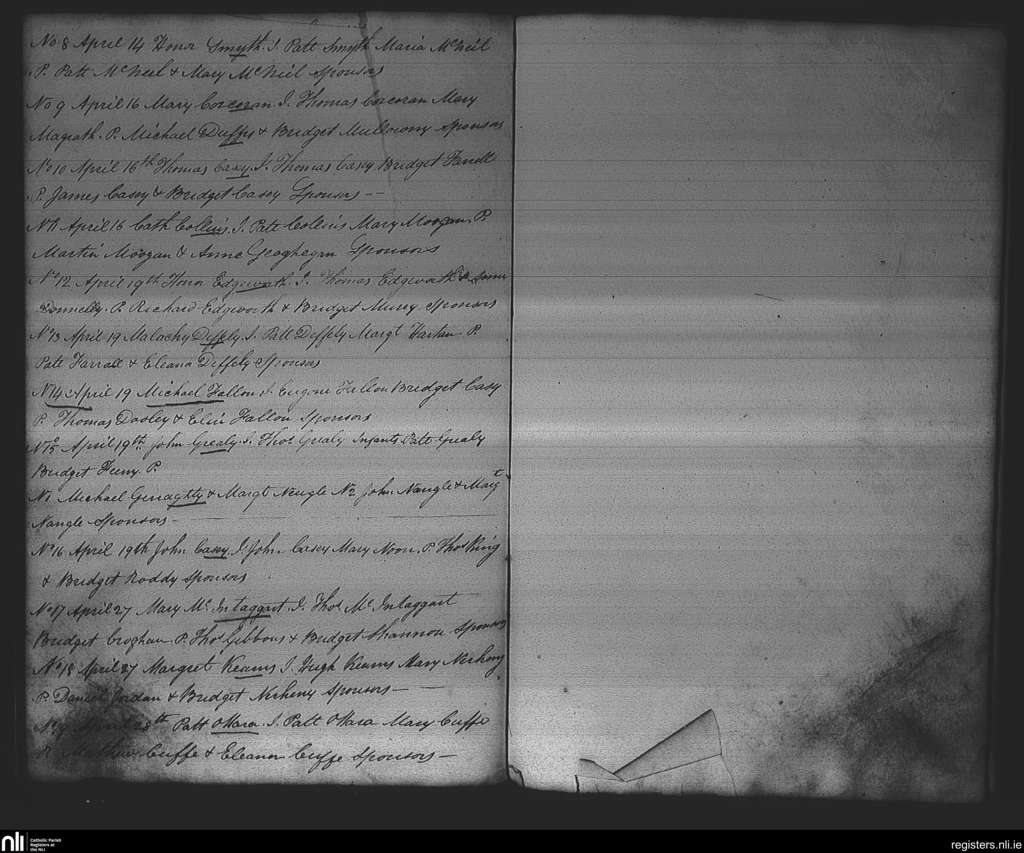 No 8 April 14 Honor Smyth. I. Patt Smyth Maria McNeil
P. Patt McNeil & Mary McNeil Sponsors
No 9 April 16 Mary Corcoran. I. Thomas Corcoran Mary
Magrath. P. Michael Duffy & Bridget Mullowny Sponsors
No 10 April 16th Thomas Casey. I. Thomas Casey Bridget Farrell
P. James Casey & Bridget Casey Sponsors —
No 11 April 16 Cath Collins. I. Patt Collins Mary Moogan. P.
Martin Moogan & Anne Geoghegan Sponsors
No 12 April 19th Honor Edgworth. I. Thomas Edgworth &
Donnelly. P. Richard Edgworth & Bridget Murry Sponsors
No 13 April 19 Malachy Diffely. I. Patt Diffely Margt Hartin P.
Patt Farrall & Eleanor Diffely Sponsors
No 14 April 19 Michael Fallon I. Eugene Fallon Bridget Casy
P. Thomas Dooley & Elin Fallon Sponsors
No 15 April 19th. John Grealy. I. Thos Grealy Infants. Patt Grealy
Bridget Feeny. P.
No 1 Michael Geraghty & Margt Neugle No 2 John Nangle & Margt
Nangle Sponsors —
No 16 April 19th John Casey. I. John Casey Mary Noon. P. Thos King
& Bridget Roddy Sponsors
No 17 April 27 Mary McIntaggart. I. Thos McIntaggart
Bridget Croghan. P. Thos Gibbons & Bridget Shannon Sponsors
No 18 April 27 Margret Keams I. Hugh Keams Mary Nerheny
P. Daniel Jordan & Bridget Nerheny Sponsors —
No 19 28th Patt OHara. I. Patt OHara Mary Cuffe
P. Matthew Cuffe & Eleanor Cuffe Sponsors —
nli
Catholic Parish
Registers at
the NLI
registers.nli.ie